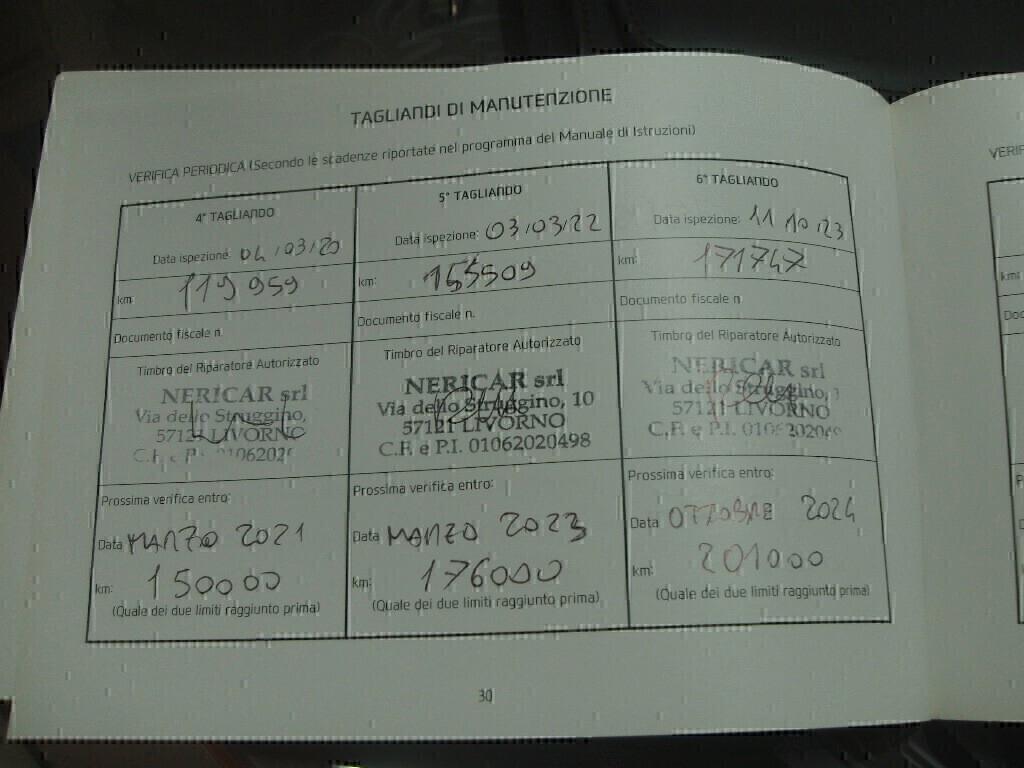 TAGLIANDI DI MANUTENZIONE
VERIFICA PERIODICA (Secondo le scadenze riportate nel programma del Manuale di Istruzioni)
4° TAGLIANDO
Data ispezione: 04/03/20
km: 119959
Documento fiscale n.
Timbro del Riparatore Autorizzato
NERICAR srl
Via dello Struggino,
57121 LIVORNO
Prossima verifica entro:
Data MARZO 2021
km: 150000
(Quale dei due limiti raggiunto prima)
5° TAGLIANDO
Data ispezione: 03/03/22
km: 155509
Documento fiscale n.
Timbro del Riparatore Autorizzato
NERICAR srl
Via dello Struggino, 10
57121 LIVORNO
C.F. e P.I. 01062020498
Prossima verifica entro:
Data MARZO 2023
km: 176000
(Quale dei due limiti raggiunto prima)
6° TAGLIANDO
Data ispezione: 11 10 23
km: 171747
Documento fiscale n
Timbro del Riparatore Autorizzato
NERICAR srl
Via dello Struggino,
57121 LIVORNO
C.F. e P.I.
Prossima verifica entro:
Data OTTOBRE 2024
km: 201000
(Quale dei due limiti raggiunto prima)
30
VERIF
km: